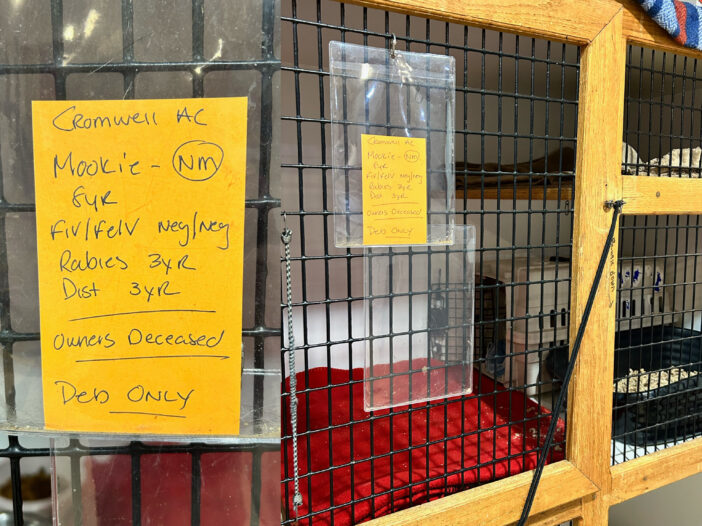 Cromwell AC
Mookie - NM
8yr
Fiv/Felv Neg/Neg
Rabies 3yr
Dist 3yr
Owners Deceased
Deb ONLY
Cromwell AC
Mookie - NM
8yr
Fiv/Felv Neg/Neg
Rabies 3yr
Dist 3yr
Owners Deceased
Deb ONLY